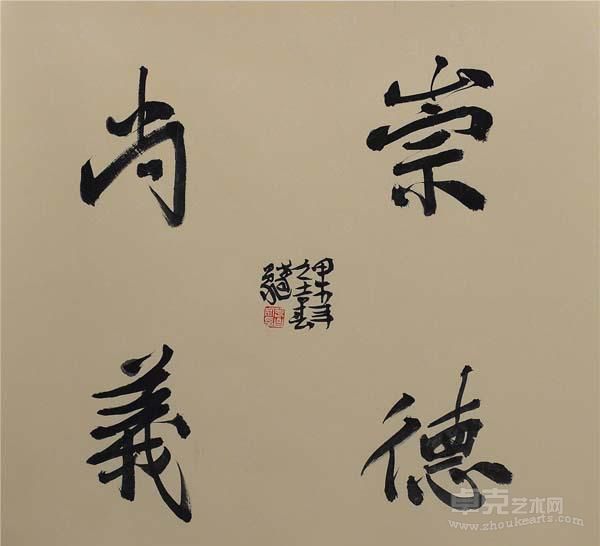 崇德
尚義
甲午年
卓克艺术网
www.zhoukearts.com